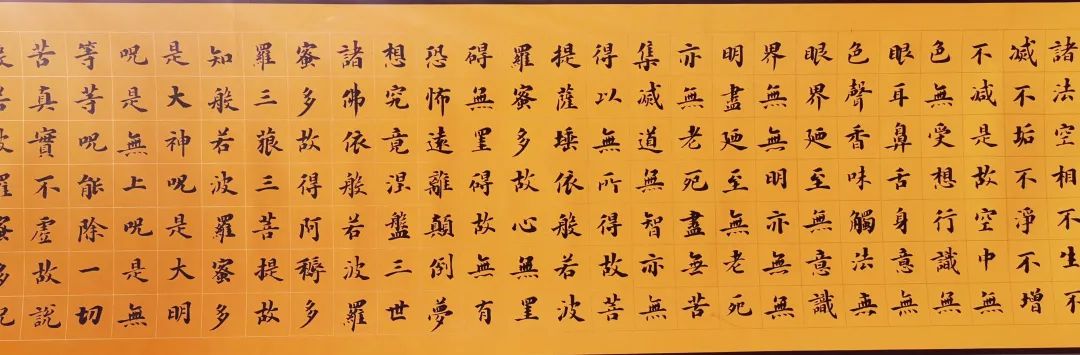 諸法空相不生不
滅不垢不淨不增
不減是故空中無
色無受想行識無
眼耳鼻舌身意無
色聲香味觸法無
眼界廼至無意識
界無無明亦無無
明盡廼至無老死
亦無老死盡無苦
集滅道無智亦無
得以無所得故菩
提薩埵依般若波
羅蜜多故心無罣
碍無罣碍故無有
恐怖遠離顛倒夢
想究竟涅盤三世
諸佛依般若波羅
蜜多故得阿耨多
羅三藐三菩提故
知般若波羅蜜多
是大神呪是大明
呪是無上呪是無
等等呪能除一切
苦真實不虛故說
般若波羅蜜多呪